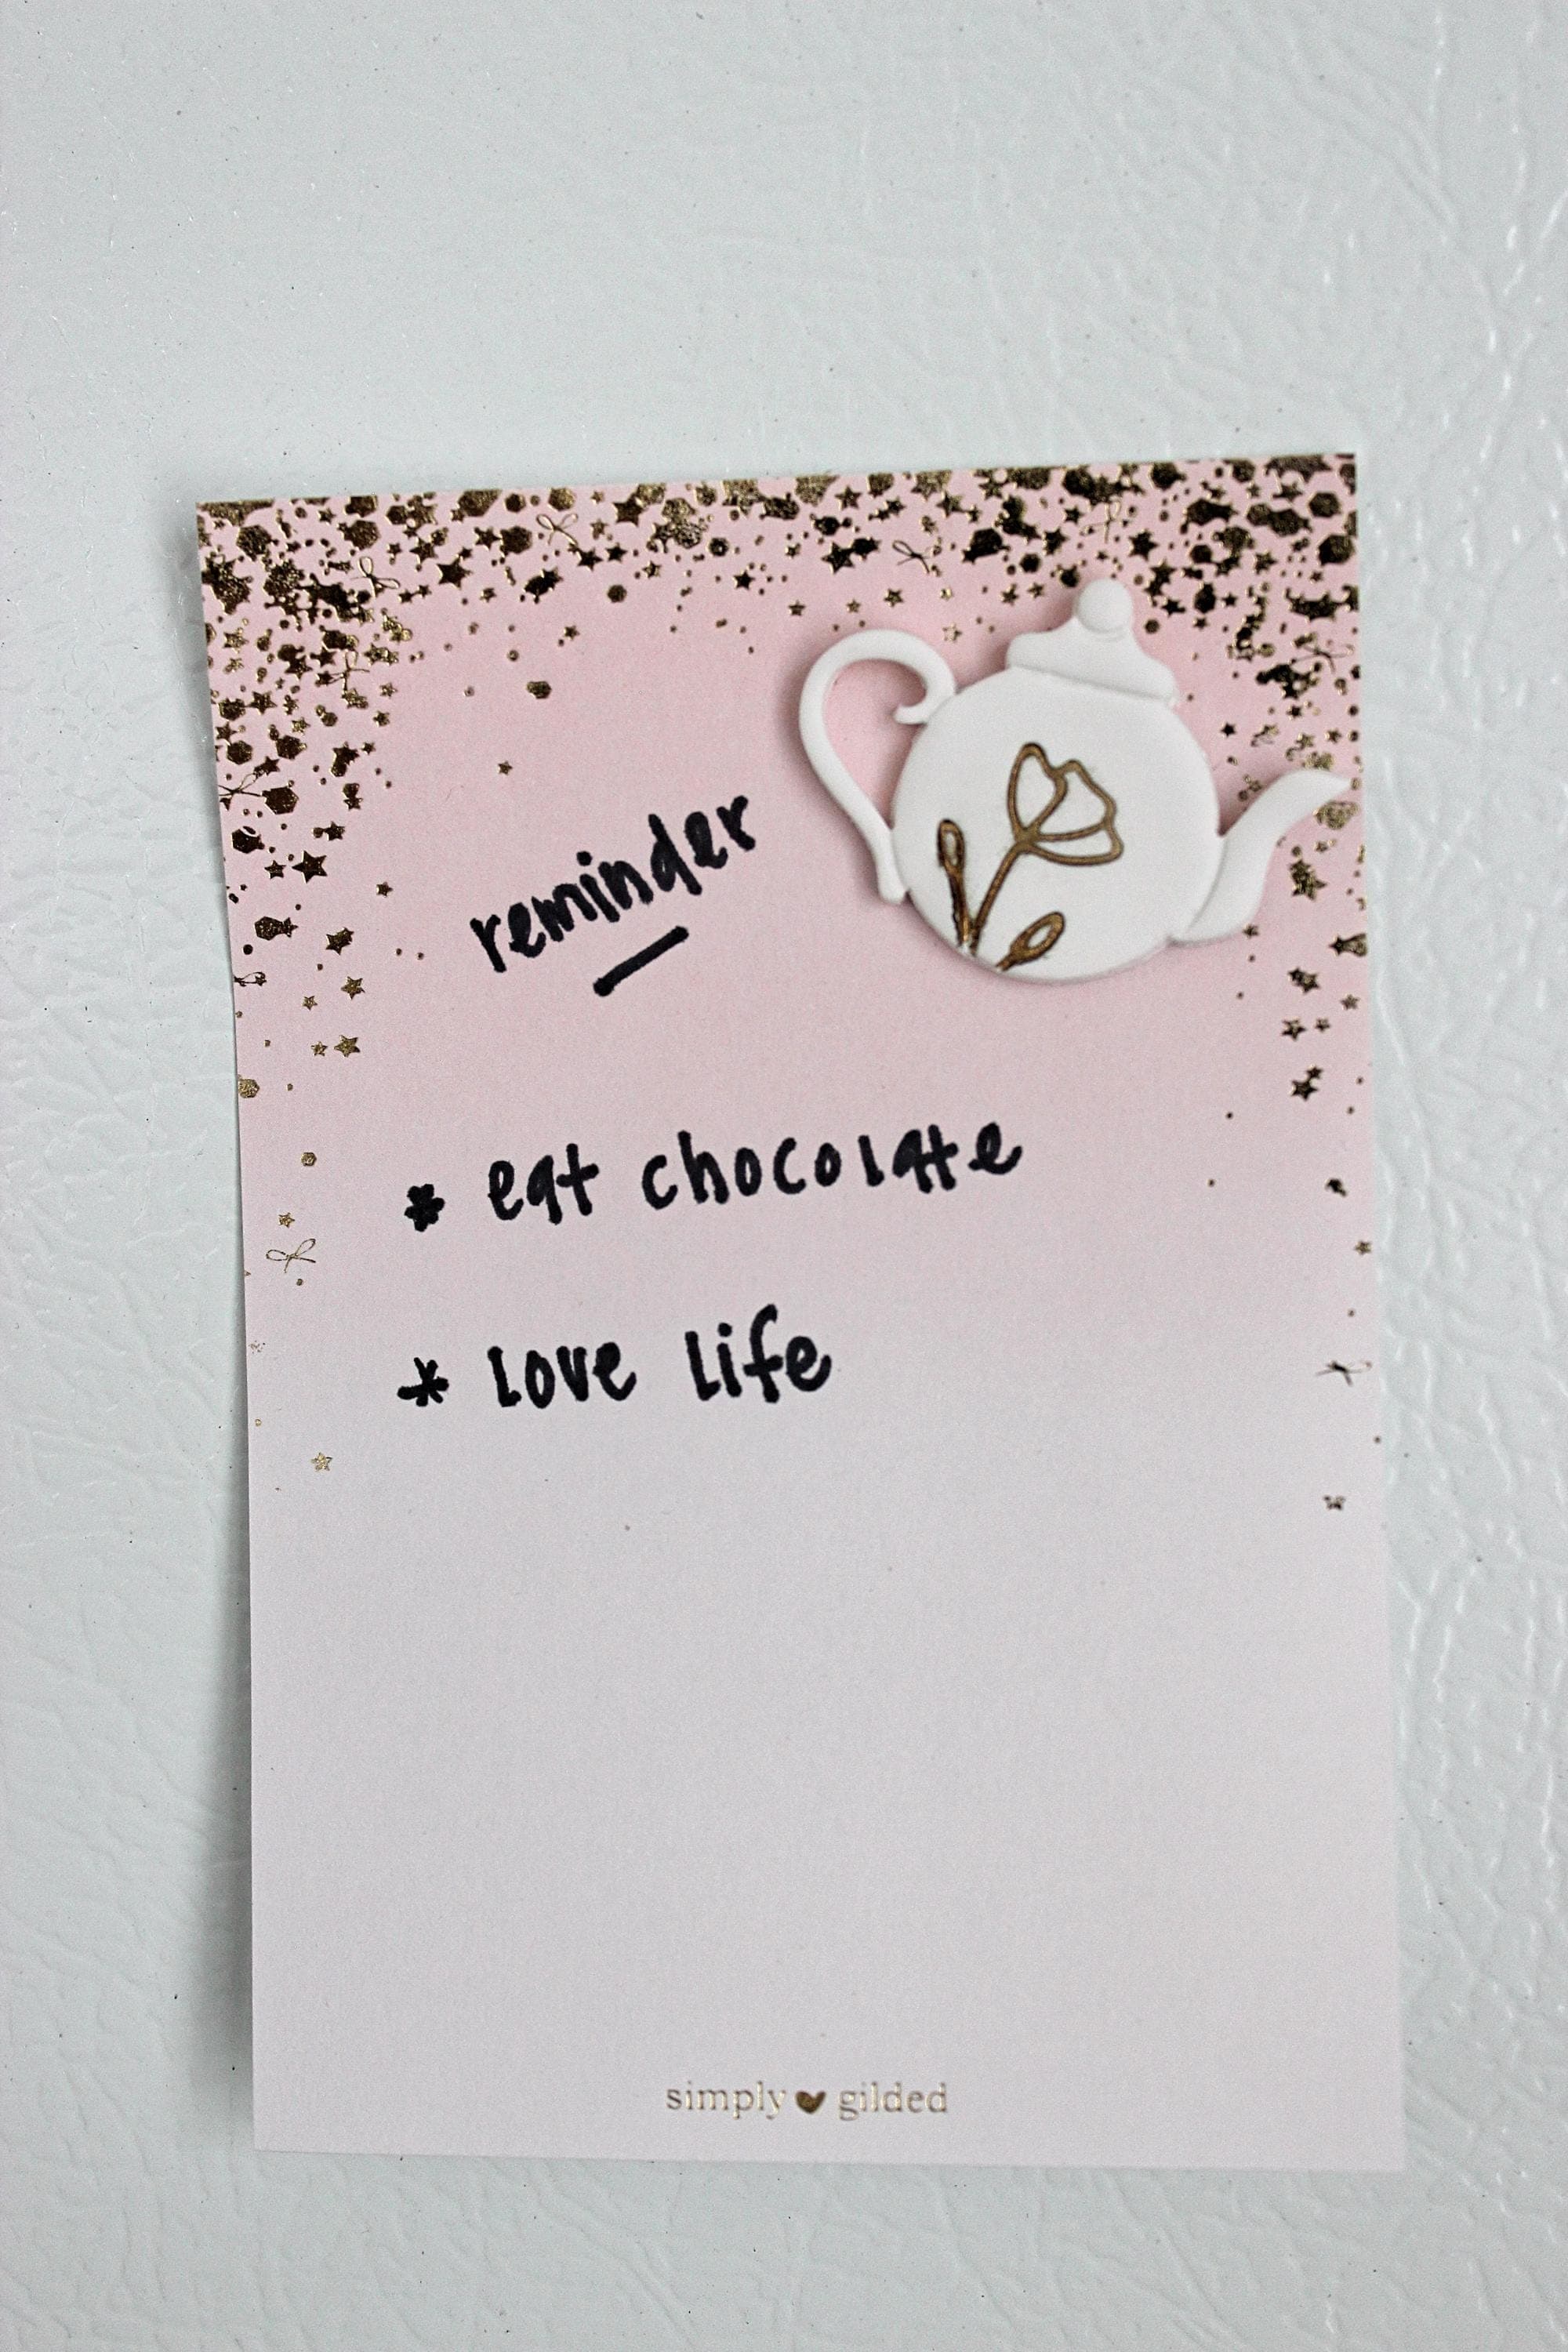 reminder
* eat chocolate
* love life
simply ♥ gilded